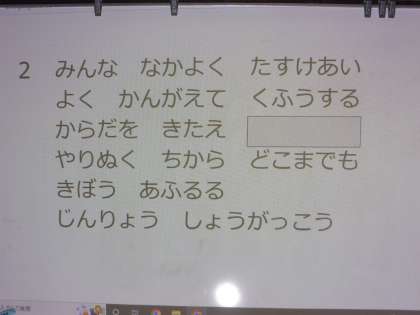 2 みんな なかよく たすけあい
よく かんがえて くふうする
からだを きたえ
やりぬく ちから どこまでも
きぼう あふるる
じんりょう しょうがっこう